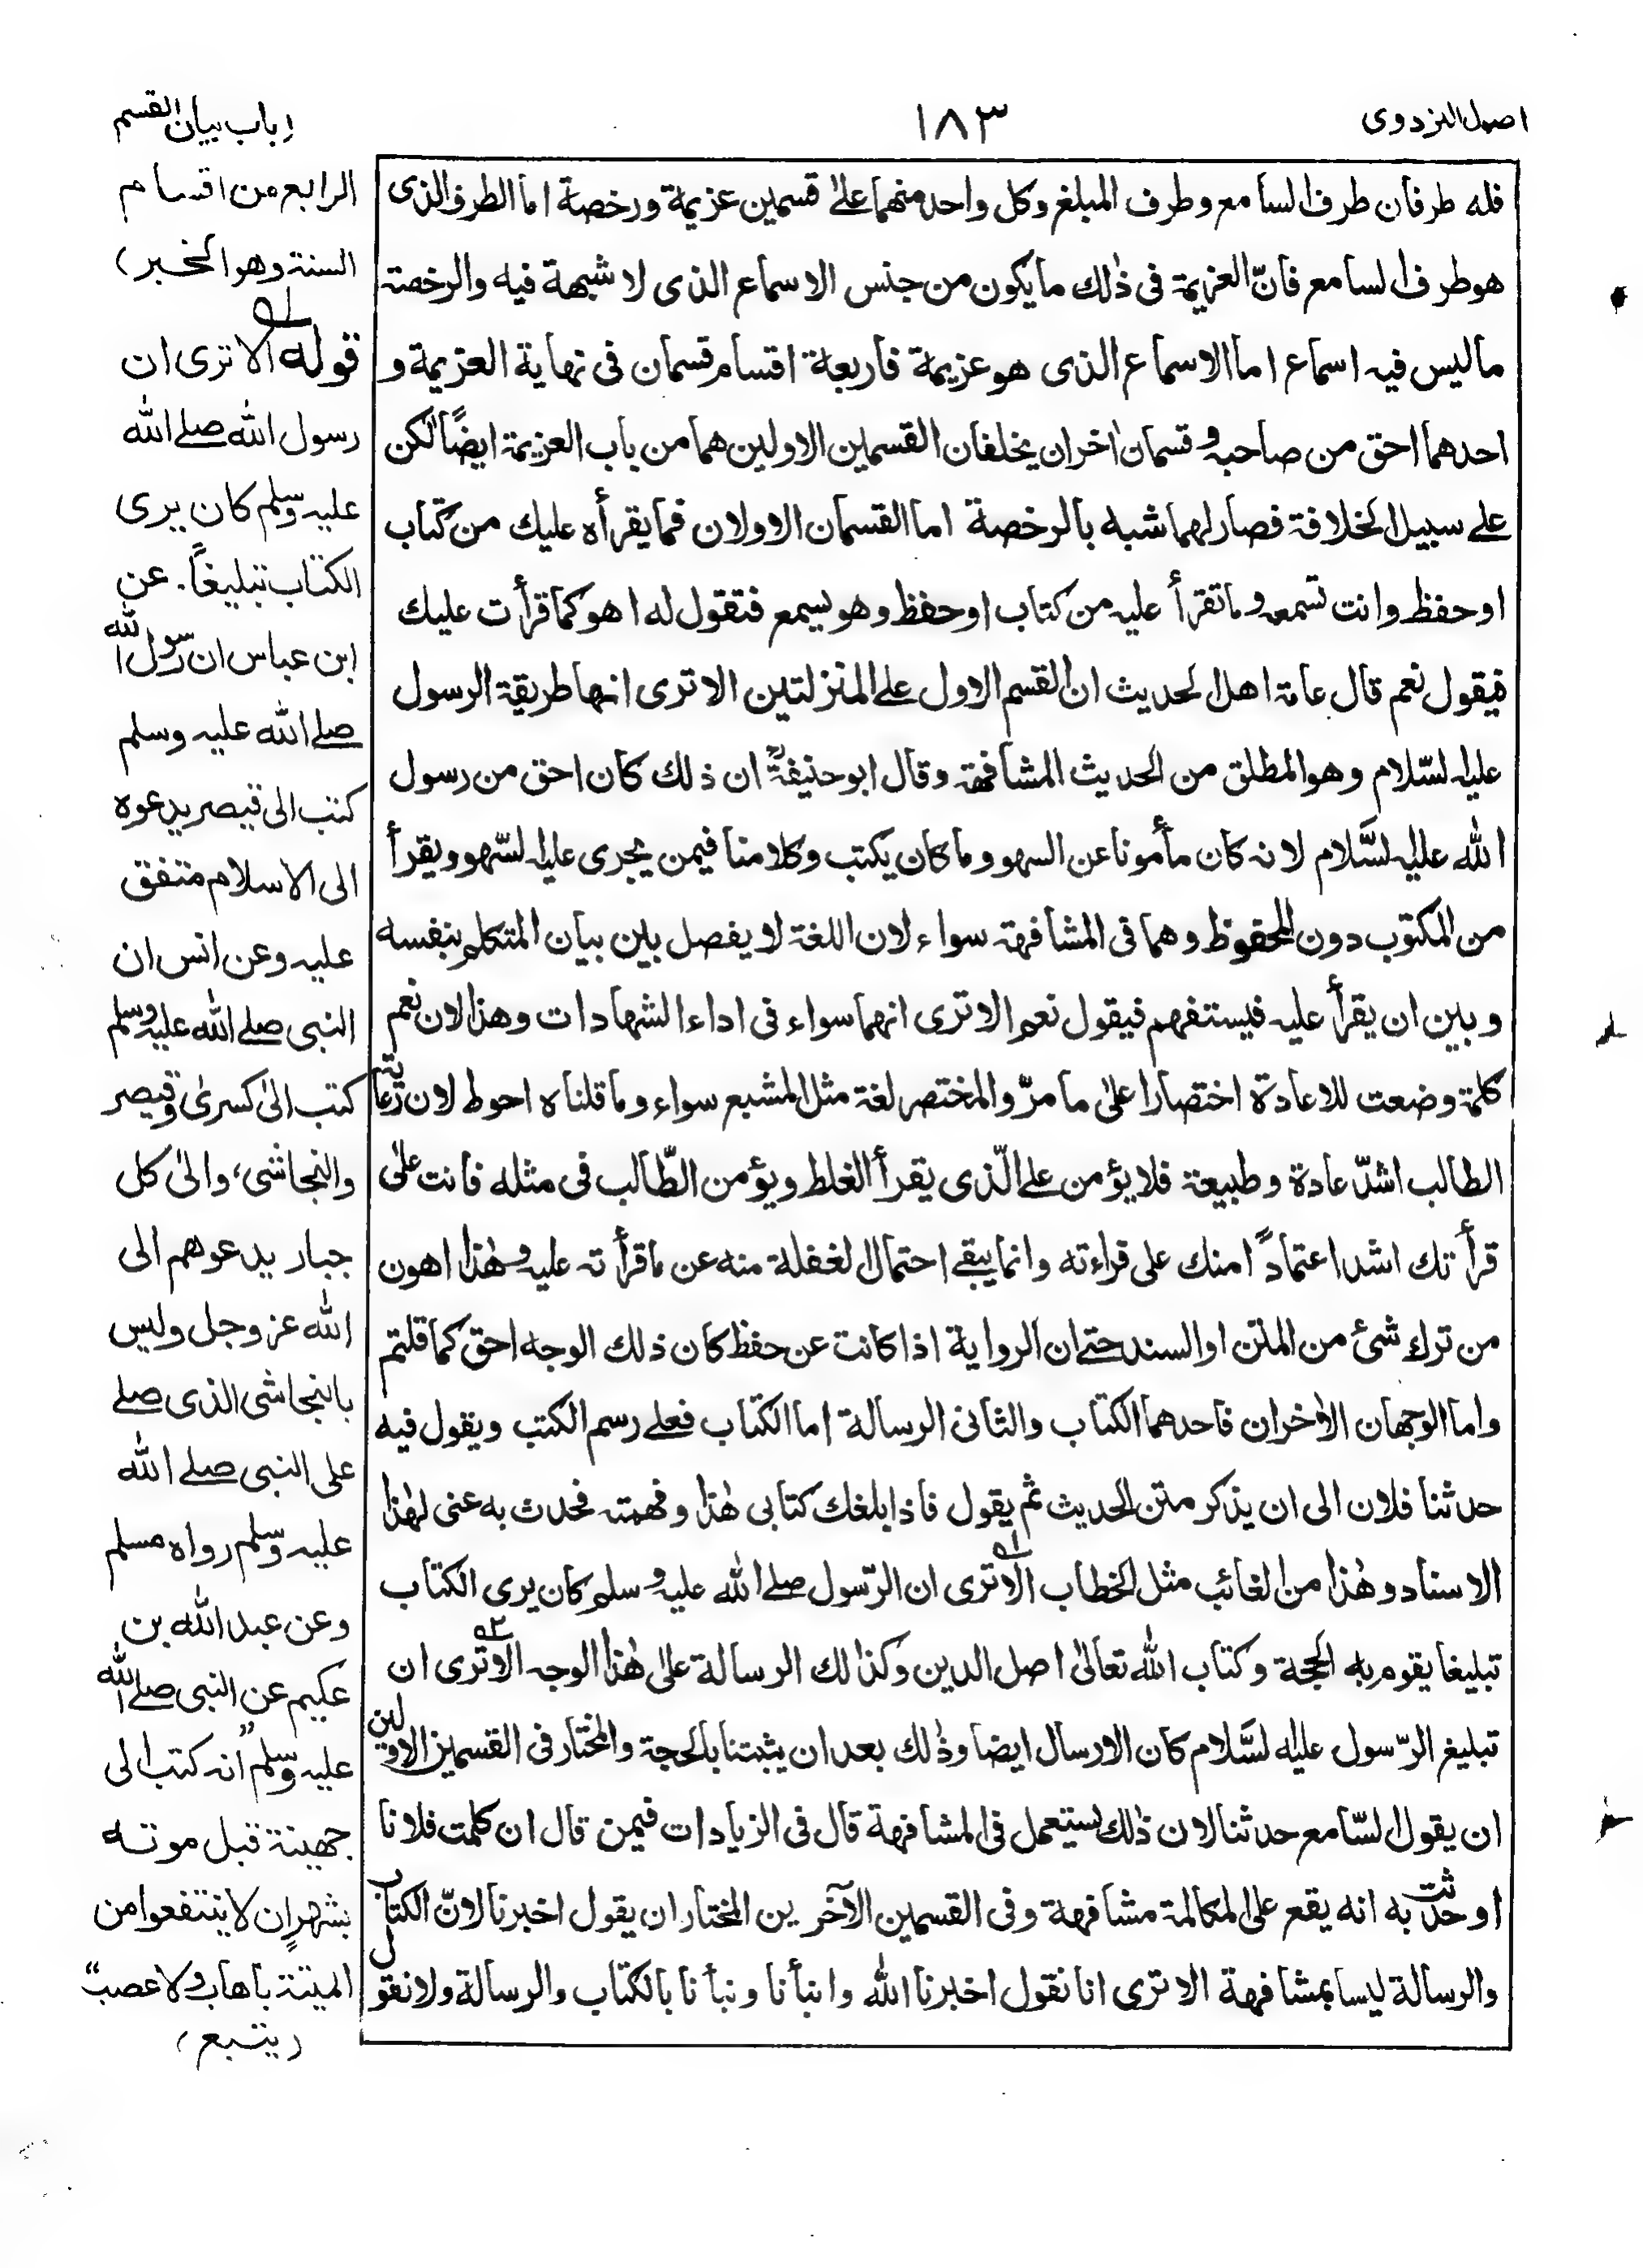 اصول البزدوی
١٨٣
(باب بيان القسم
فله طرفان طرف السامع وطرف المبلغ وكل واحد منهما علیٰ قسمين عزيمة ورخصة اما الطرف الذی
هو طرف السامع فانّ العزيمة فی ذٰلك مايكون من جنس الاسماع الذی لا شبهة فيه والرخصة
ماليس فيه اسماع اما الاسماع الذی هو عزيمة فاربعة اقسام قسمان فی نهاية العزيمة و
احدهما احق من صاحبه و قسمان اٰخران يخلفان القسمين الاولين هما من باب العزيمة ايضًا لٰكن
علے سبيل الخلافة فصار لهما شبه بالرخصة اما القسمان الاولان فما يقرأه عليك من كتاب
او حفظ وانت تسمعه وما تقرأ عليه من كتاب او حفظ وهو يسمع فتقول له اهو كما قرأت عليك
فيقول نعم قال عامة اهل الحديث ان القسم الاول علے المنزلتين الا تری انها طريقة الرسول
عليه السّلام وهو المطلق من الحديث المشافهة وقال ابو حنيفةؒ ان ذلك كان احق من رسول
الله عليه السَّلام لانه كان مأمونا عن السهو وما كان يكتب وكلامنا فيمن يجری عليه السّهو ويقرأ
من المكتوب دون المحفوظ وهما فی المشافهة سواء لان اللغة لا يفصل بين بيان المتكلم بنفسه
وبين ان يقرأ عليه فيستفهم فيقول نعم الا تری انهما سواء فی اداء الشهادات وهذا لان نعم
كلمة وضعت للاعادة اختصارا علیٰ ما مرّ والمختصر لغة مثل المشبع سواء وما قلناه احوط لان رعاية
الطالب اشدّ عادة وطبيعة فلا يؤمن علے الّذی يقرأ الغلط ويؤمن الطّالب فی مثله فانت علیٰ
قرأتك اشد اعتمادًا منك علی قراءته وانما يبقے احتمال الغفلة منه عن ما قرأته عليه و هٰذا اهون
من ترك شئ من المتن او السند حتے ان الرواية اذا كانت عن حفظ كان ذلك الوجه احق كما قلتم
واما الوجهان الاٰخران فاحدهما الكتاب والثانی الرسالة اما الكتاب فعلے رسم الكتب ويقول فيه
حدثنا فلان الی ان يذكر متن الحديث ثم يقول فاذا بلغك كتابی هٰذا وفهمته فحدث به عنی لهٰذا
الاسناد وهٰذا من الغائب مثل الخطاب الا تری ان الرّسول صلے الله عليه و سلم كان يری الكتاب
تبليغا يقوم به الحجة وكتاب الله تعالیٰ اصل الدين وكذالك الرسالة علیٰ هٰذا الوجه الا تری ان
تبليغ الرّسول عليه السَّلام كان الارسال ايضا وذٰلك بعد ان يثبتنا بالحجة والمختار فی القسمين الاولين
ان يقول السّامع حدثنا لان ذٰلك يستعمل فی المشافهة قال فی الزيادات فيمن قال ان كلمت فلانا
او حدثت به انه يقع علی المكالمة مشافهة وفی القسمين الآخرين المختار ان يقول اخبرنا لانّ الكتاب
والرسالة ليسا بمشافهة الا تری انا نقول اخبرنا الله وانبأنا ونبأنا بالكتاب والرسالة ولا نقول
الرابع من اقسام
السنة وهو الخبر)
قوله الا تری ان
رسول الله صلے الله
عليه وسلم كان يری
الكتاب تبليغاً. عن
ابن عباس ان رسول الله
صلے الله عليه وسلم
كتب الی قيصر يدعوه
الی الاسلام متفق
عليه وعن انس ان
النبی صلے الله عليه وسلم
كتب الیٰ كسریٰ وقيصر
والنجاشی، والیٰ كل
جبار يدعوهم الی
الله عز وجل وليس
بالنجاشی الذی صلے
علی النبی صلے الله
عليه وسلم رواه مسلم
وعن عبد الله بن
عكيم عن النبی صلے الله
عليه وسلم "انه كتب الی
جهينة قبل موته
بشهرٍ ان لا ينتفعوا من
الميتة باهاب ولا عصب"
(يتبع)